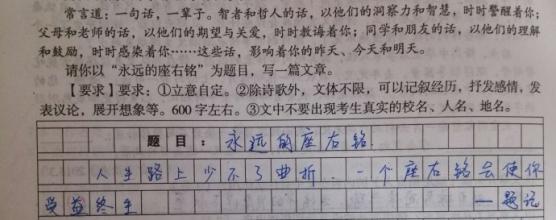 常言道：一句话，一辈子。智者和哲人的话，以他们的洞察力和智慧，时时警醒着你；
父母和老师的话，以他们的期望与关爱，时时教诲着你；同学和朋友的话，以他们的理解
和鼓励，时时感染着你……这些话，影响着你的昨天、今天和明天。
请你以“永远的座右铭”为题目，写一篇文章。
【要求】要求：①立意自定。②除诗歌外，文体不限，可以记叙经历，抒发感情，发
表议论，展开想象等。600字左右。③文中不要出现考生真实的校名、人名、地名。
题 目：永远的座右铭
人生路上少不了曲折，一个座右铭会使你
受益终生 —题记